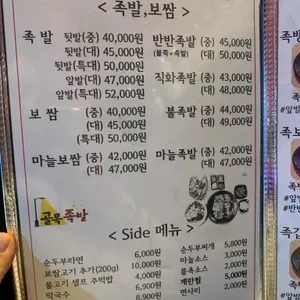 족발,보쌈
족 발 뒷발(중) 40,000원
뒷발(대) 45,000원
뒷발(특대) 50,000원
앞발(대) 47,000원
앞발(특대) 52,000원
반반족발 (중) 45,000원
(불족+족발) (대) 50,000원
직화족발 (중) 43,000원
(대) 48,000원
보 쌈 (중) 40,000원
(대) 45,000원
(특대) 50,000원
불족발 (중) 44,000원
(대) 49,000원
마늘보쌈 (중) 42,000원
(대) 47,000원
마늘족발 (중) 42,000원
(대) 47,000원
골목족발
Side 메뉴
순두부라면 6,000원
보쌈고기 추가(200g) 10,000원
불고기 셀프 주먹밥 4,000원
막국수 8,900원
순두부찌개 5,800원
마늘소스 3,000원
불족소스 2,000원
계란찜 5,000원
면사리
족
#앞발
족보
#앞발
족갑